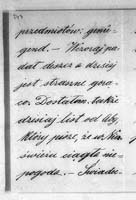 przedmiotów; 
gend. — Wczoraj pa-
dał deszcz a dzisiaj
jest straszne gorą-
co. Dostałam także
dzisiaj list od 
który pisze, że w 
świeciu ciągła nie-
pogoda. —